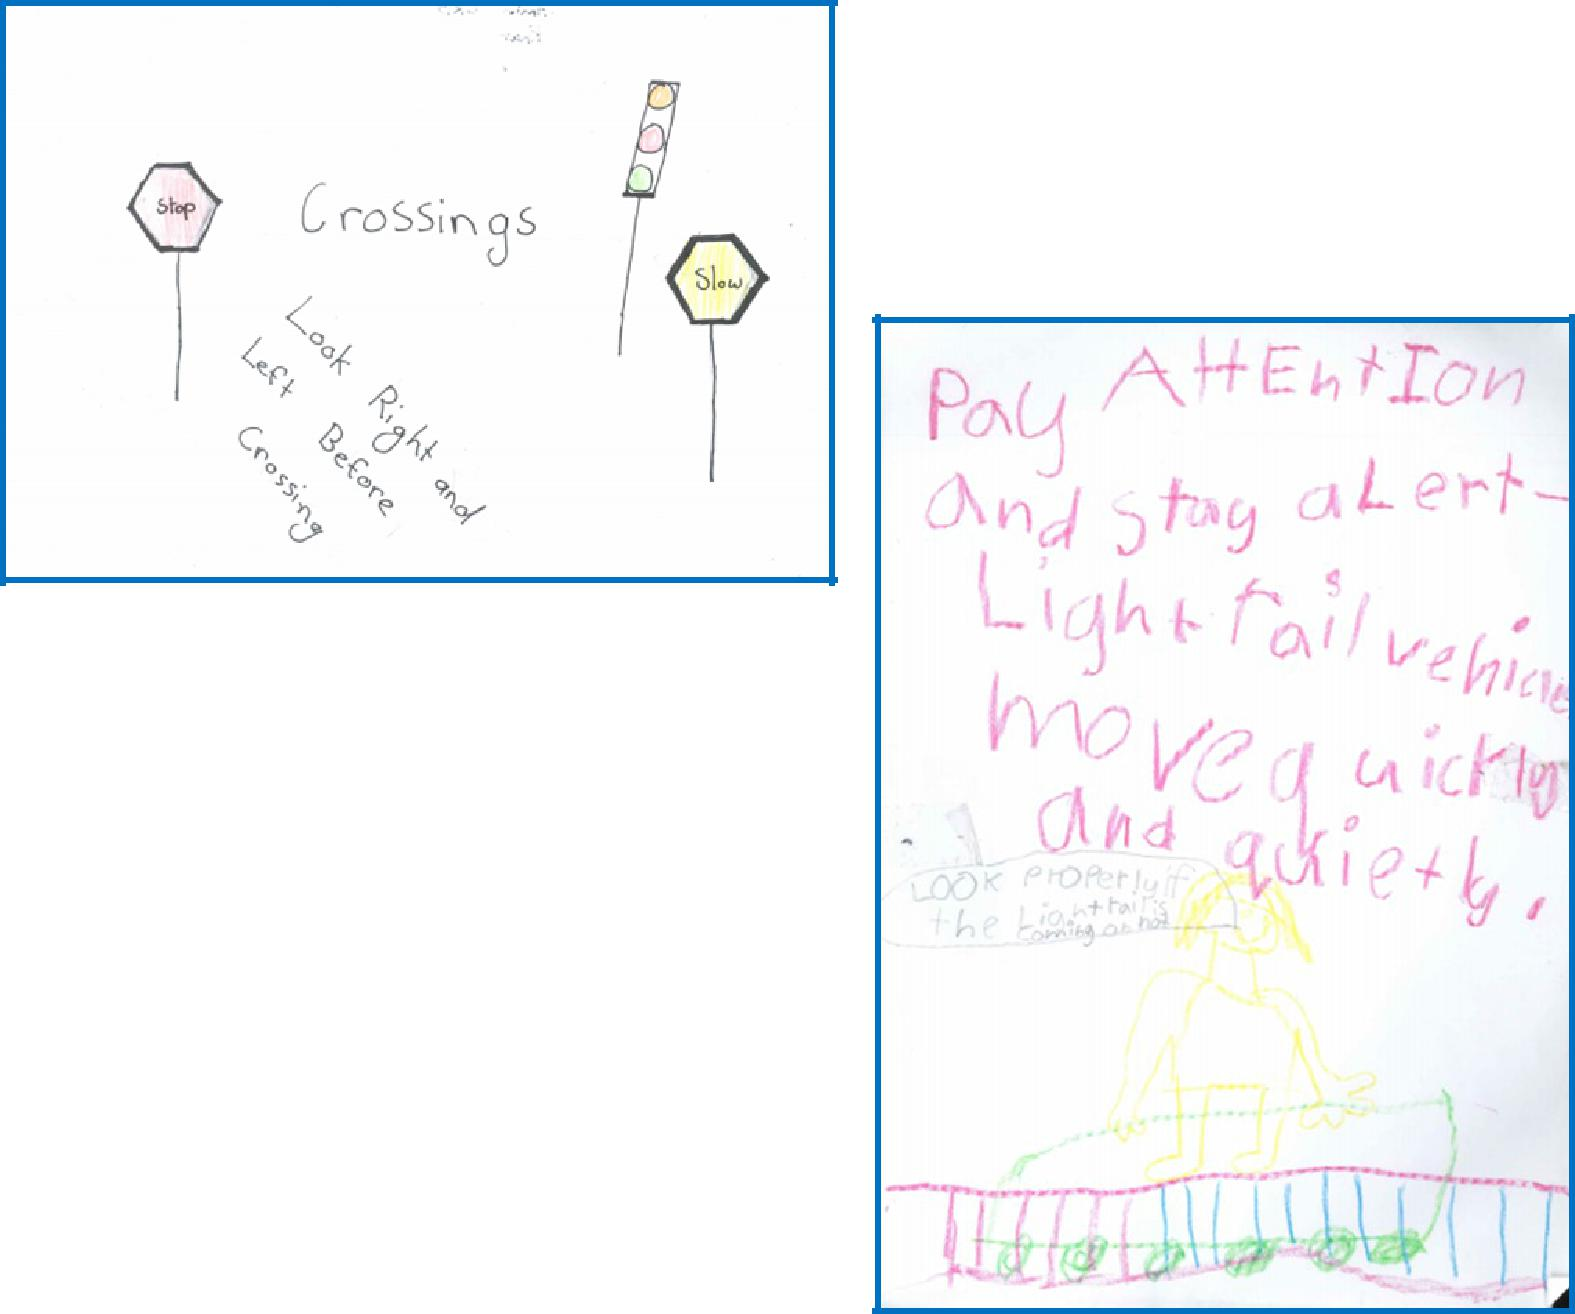 Stop
Crossings
Slow
Look Right and
Left Before
Crossing
Pay AttEntIon
and stay aLert-
Light rail vehicles
move quickly
and quietly.
LOOK properly if
the Light rail is
coming or not